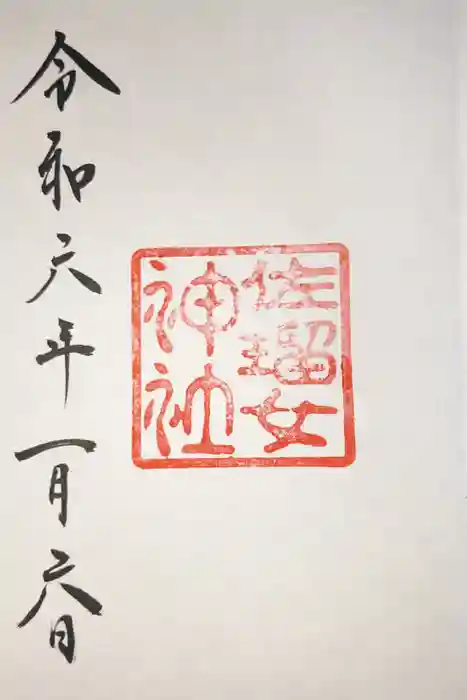 佐瑠女
神社
令和六年一月六日